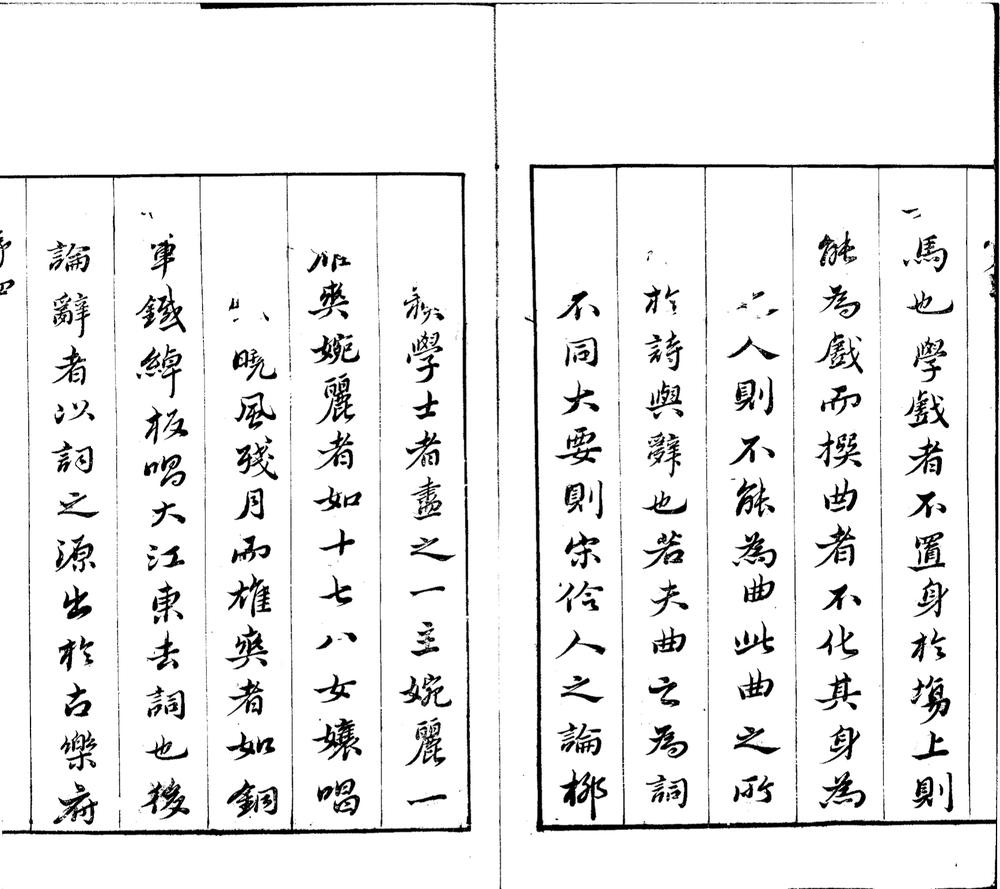 馬也學戲者不置身於塲上則
能為戲而撰曲者不化其身為
人則不能為曲此曲之所
於詩與辭也若夫曲之為詞
不同大要則宋伶人之論柳
學士者盡之一主婉麗一
爽婉麗者如十七八女孃唱
曉風殘月而雄爽者如銅
軍鐵綽板唱大江東去詞也後
論辭者以詞之源出於古樂府